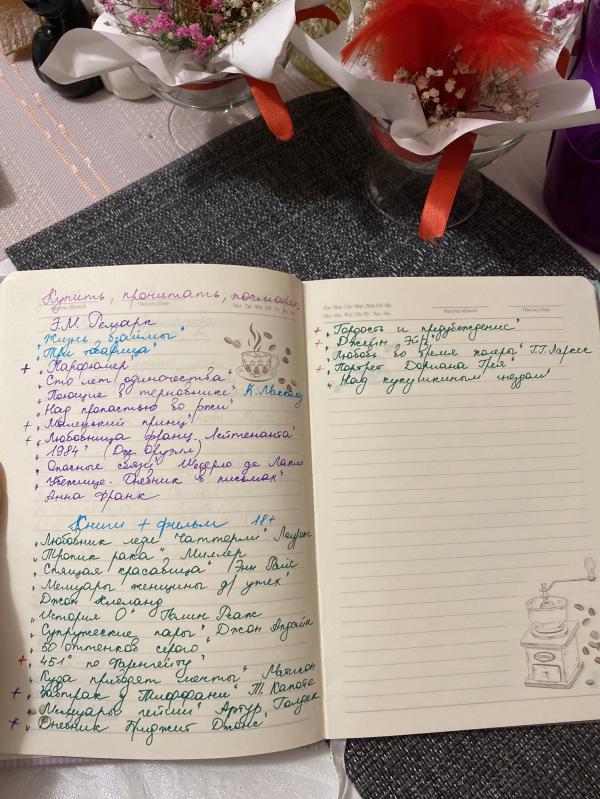 Купить, прочитать, посмотреть
Э.М. Ремарк
„Жизнь взаймы"
„Три товарища"
+ „Парфюмер
„Сто лет одиночества"
„Поющие в терновнике" К. Маккалоу
„Над пропастью во ржи"
+ „Маленький принц"
+ „Любовница франц. Лейтенанта"
„1984" (Дж Оруэлл)
„Опасные связи" Шодерло де Лакло
„Убежище. Дневник в письмах"
Анна Франк
Книги + фильм 18+
„Любовник леди Чаттерли"
„Тропик рака" Миллер
„Спящая красавица" Энн Райс
„Мемуары женщины д/ утех"
Джон Клеланд
„История О" Полин Реаж
„Супружеские пары" Джон Апдайк
„50 оттенков серого"
+ „451° по Фаренгейту"
„Куда приводят мечты" Матисон
+ „Завтрак у Тиффани" Т. Капоте
„Мемуары гейши" Артур Голден
+ „Дневник Бриджит Джонс"
+ „Гордость и предубеждение"
+ „Джейн Эйр"
„Любовь во время холеры" Г.Г. Маркес
+ „Портрет Дориана Грея"
„Над кукушкиным гнездом"